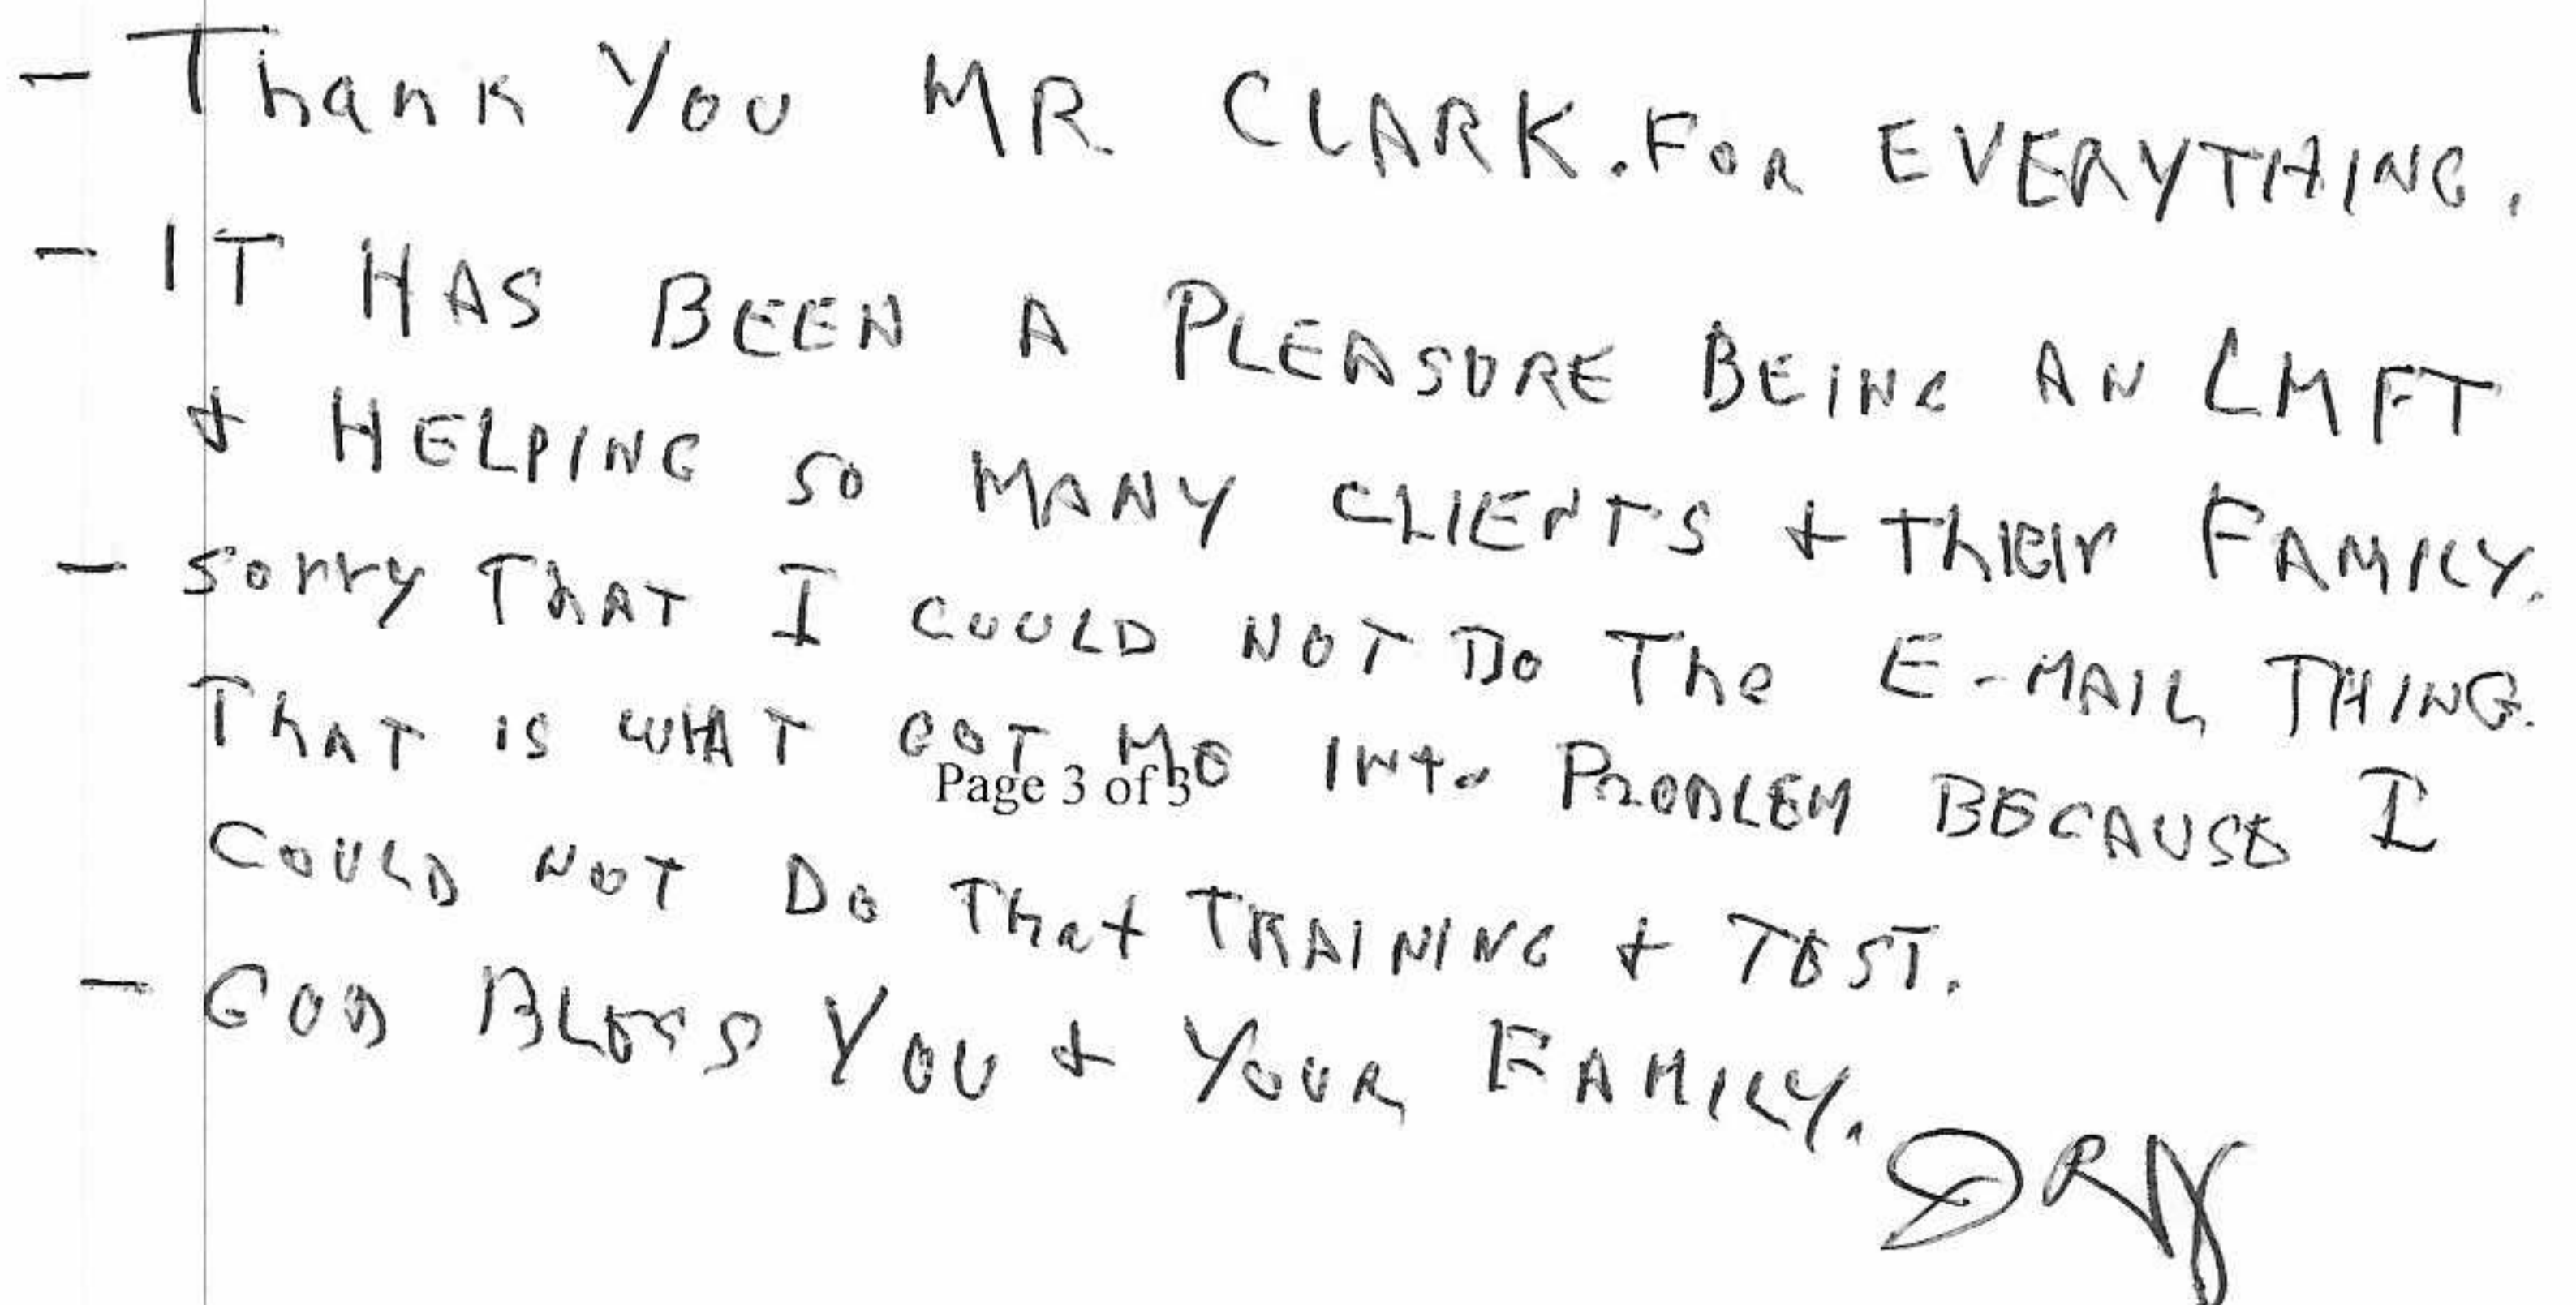 - Thank You MR. CLARK. FOR EVERYTHING.
- IT HAS BEEN A PLEASURE BEING AN LMFT
+ HELPING SO MANY CLIENTS + THEIr FAMILY.
- sorry ThAT I COULD NOT DO The E-MAIL THING.
ThAT IS WHAT GOT ME INto PROBLEM BECAUSE I
Page 3 of 3
COULD NOT DO That TRAINING + TEST.
- GOD BLESS YOU + YOUR FAMILY.